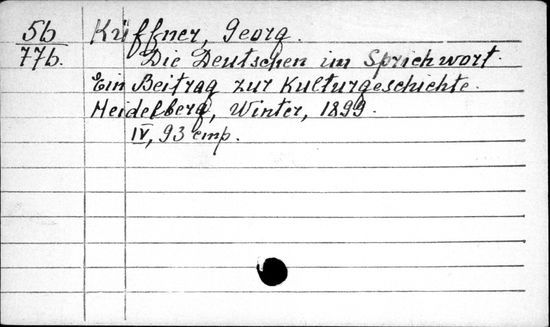 5b Küffner, Georg.
77b. Die Deutschen im Sprichwort.
Ein Beitrag zur Kulturgeschichte.
Heidelberg, Winter, 1899.
IV, 93 cmp.